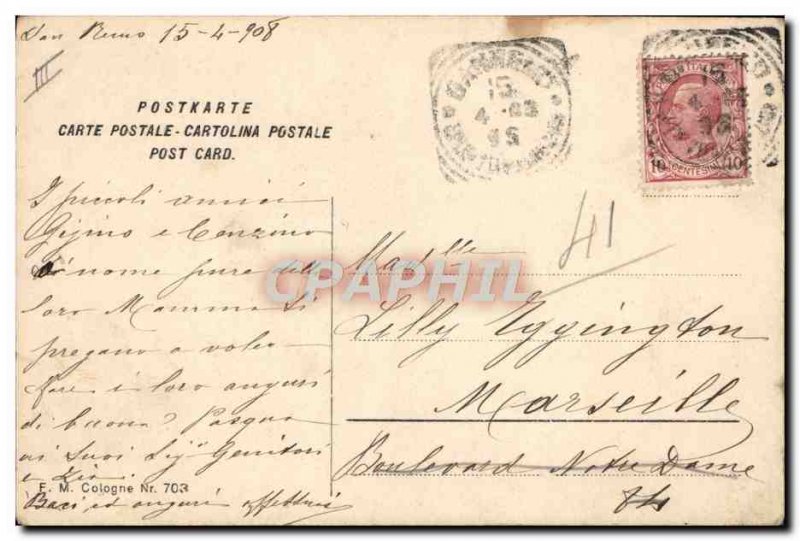 San Remo 15-4-908
III
POSTKARTE
CARTE POSTALE-CARTOLINA POSTALE
POST CARD.
I piccoli amici
Gigino e Cenzino
a nome pure della
loro Mamma Li
pregano a voler
fare i loro auguri
di buona Pasqua
ai Suoi Sig. Genitori
e Zio
Baci ed auguri affettuosi
F. M. Cologne Nr. 703
15
4 - 
10 CENTESIMI 10
41
CPAPHIL
Mad.elle
Lilly Eggington
Marseille
Boulevard Notre Dame
84